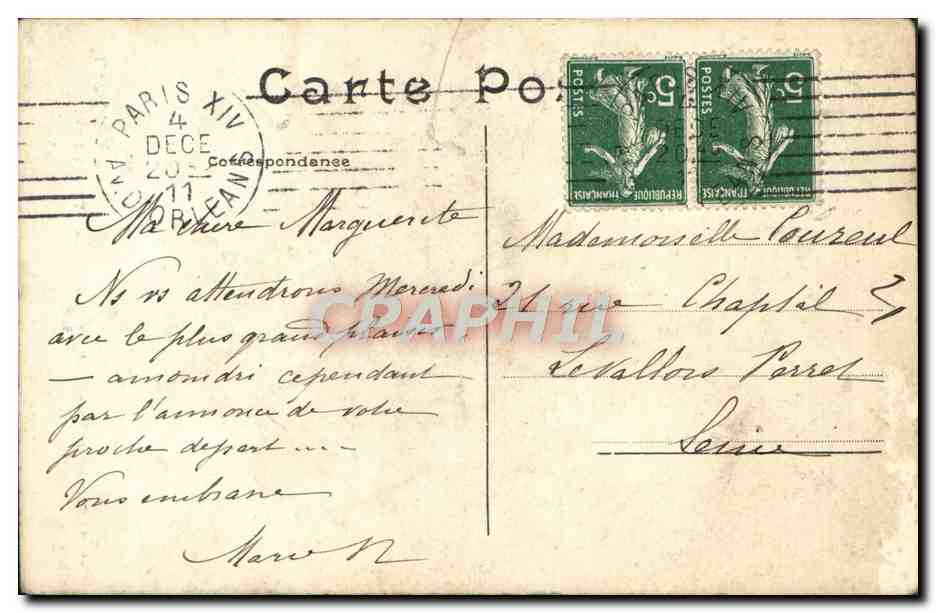 Carte Pos
Correspondance
PARIS XIV
4
DECE
20
11
ORLEANS
5c
POSTES
REPUBLIQUE FRANÇAISE
5c
POSTES
REPUBLIQUE FRANÇAISE
Ma chère Marguerite
Ns vs attendrons Mercredi
avec le plus grand plaisir
— amoindri cependant
par l'annonce de votre
proche départ ....
Vous embrasse
Marie N
Mademoiselle
21 rue Chaptal
Levallois Perret
Seine
CPAPHIL